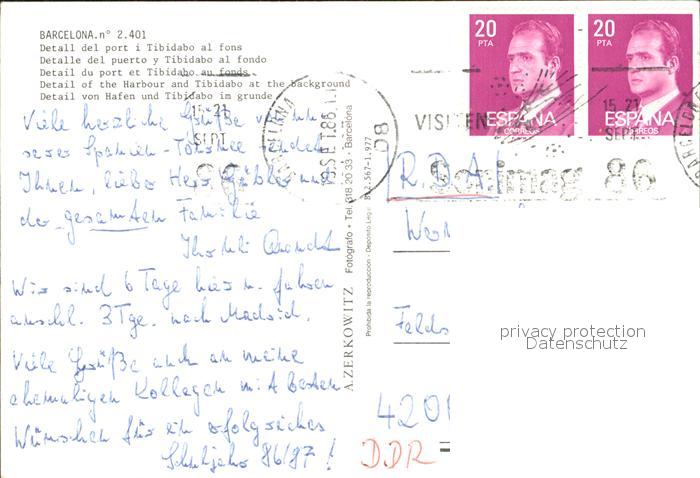 BARCELONA.nº 2.401
Detall del port i Tibidabo al fons
Detalle del puerto y Tibidabo al fondo
Detail du port et Tibidabo au fonds
Detail of the Harbour and Tibidabo at the background
Detail von Hafen und Tibidabo im grunde
Viele herzliche Grüße von un-
serer Spanien-Tournee sendet
Ihnen, lieber Herr und
der gesamten Familie
Ihr
Wir sind 6 Tage hier u. fahren
anschl. 3 Tge. nach Madrid.
Viele Grüße auch an meine
ehemaligen Kollegen mit besten
Wünschen für ein erfolgreiches
Schuljahr 86/87!
A. ZERKOWITZ Fotógrafo • Tel. 318 20 33 - Barcelona
Prohibida la reproducción - Depósito Legal B 12.567-1.977
20
PTA
ESPAÑA
CORREOS
20
PTA
ESPAÑA
CORREOS
VISITEN
Sonimag 86
15 21
SEPT
15 21
SEPT
BARCELONA
08
R.D.A.
Felds
4201
DDR
privacy protection
Datenschutz